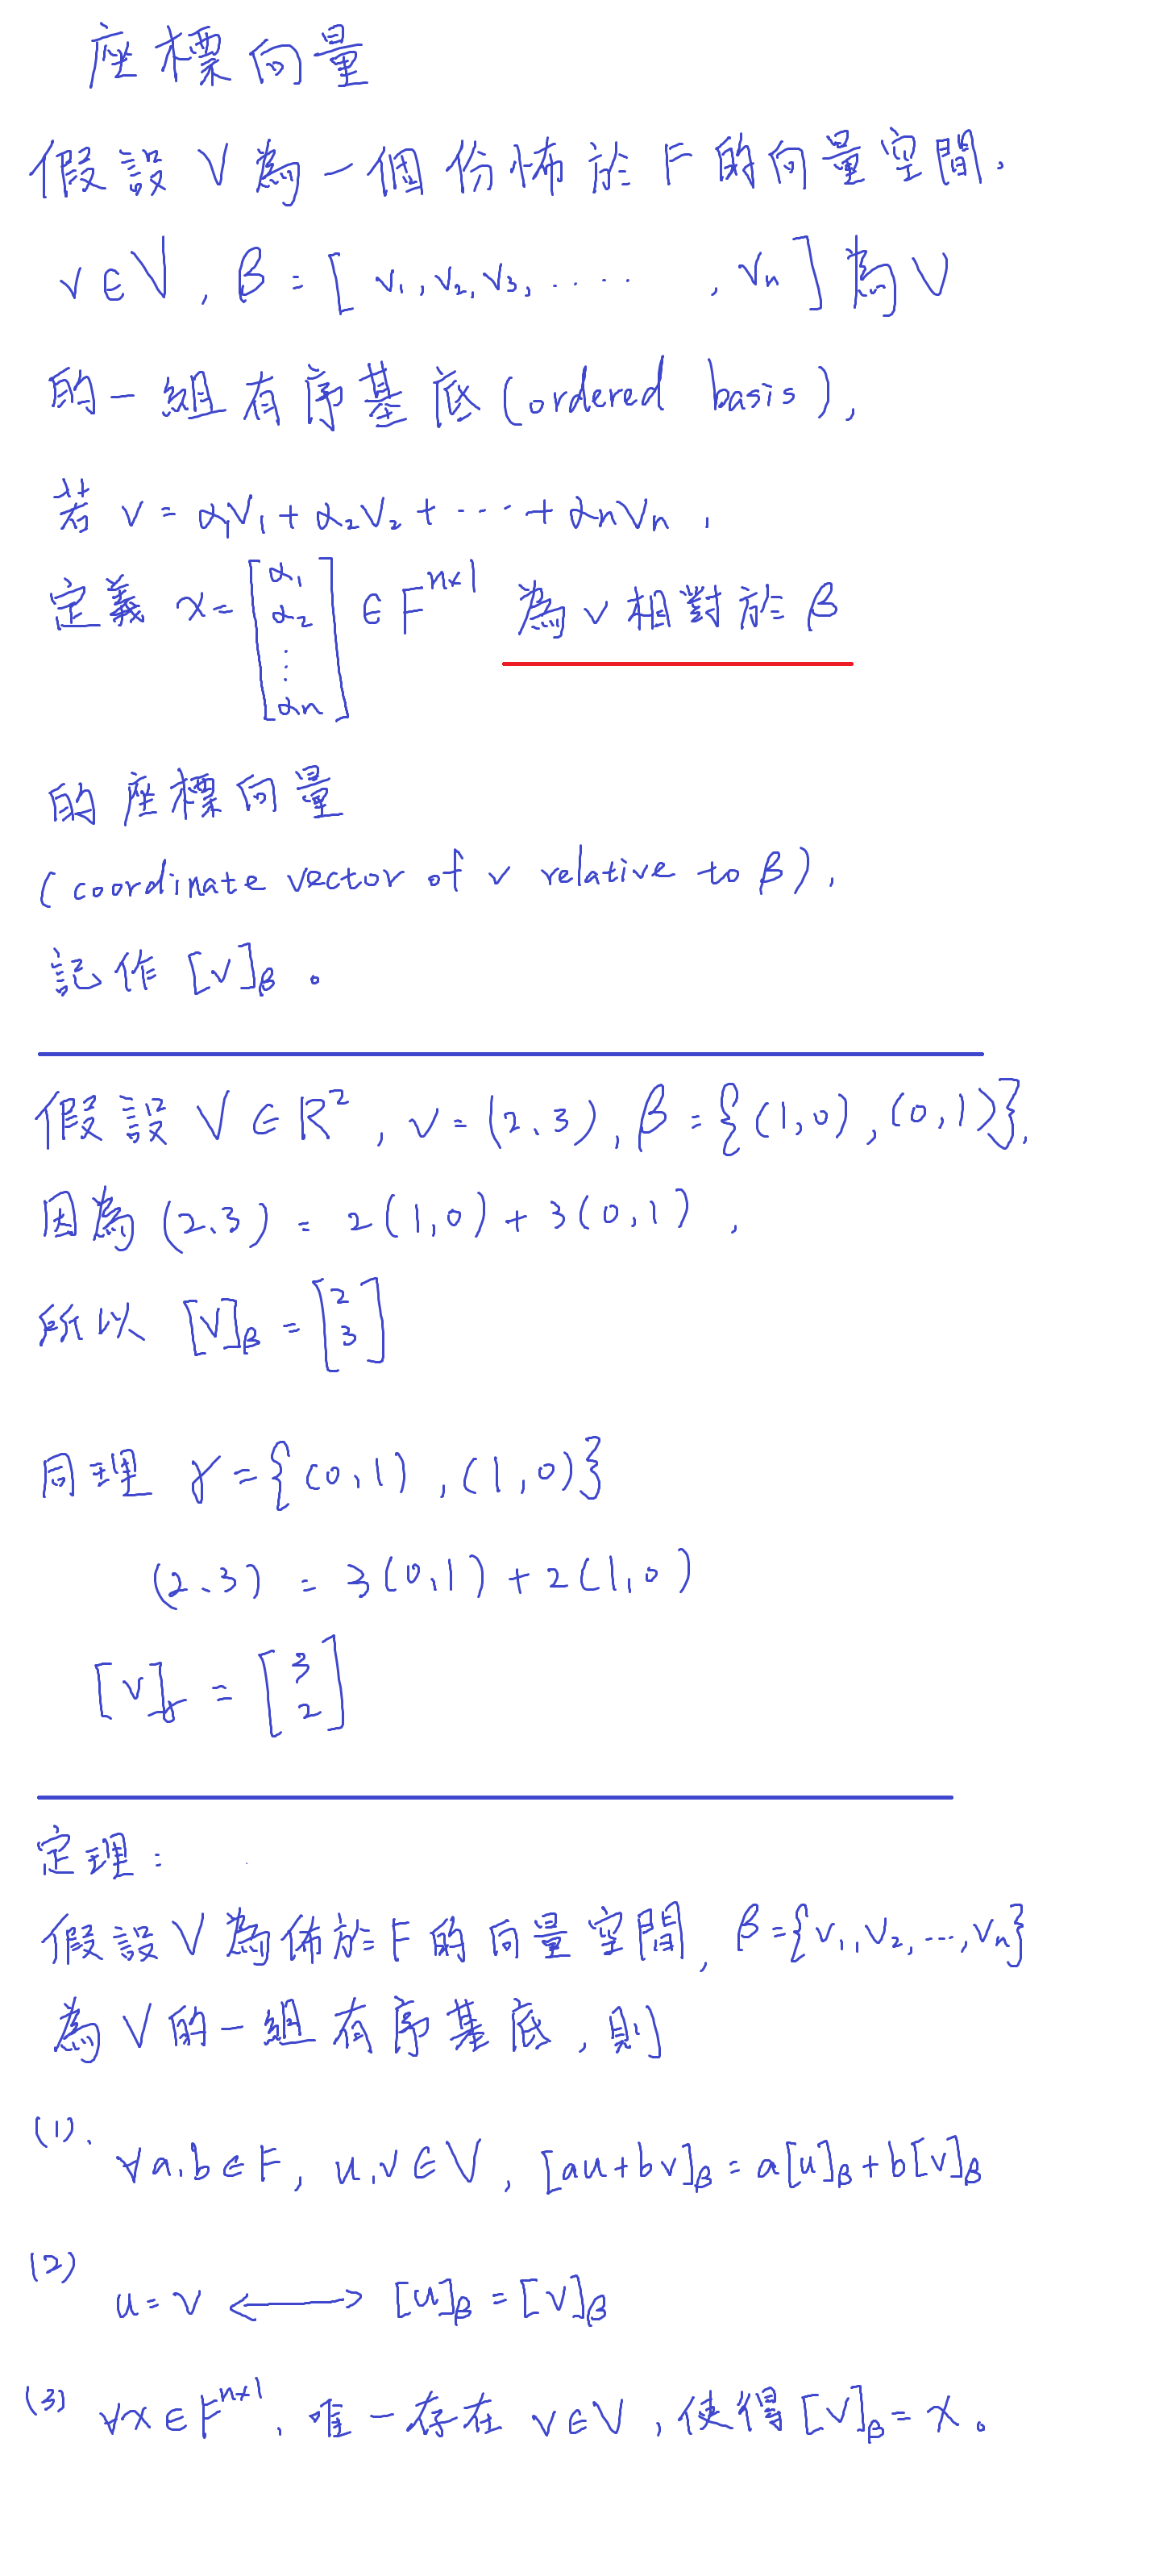 座標向量
假設 V 為一個份怖於 F 的向量空間,
v∈V, β = [v₁, v₂, v₃, ......, vₙ] 為 V
的一組有序基底(ordered basis),
若 v = α₁v₁ + α₂v₂ + ... + αₙvₙ,
定義 x = [α₁ α₂ ⋮ αₙ] ∈ Fⁿˣ¹ 為 v 相對於 β
的座標向量
(coordinate vector of v relative to β),
記作 [v]β。
假設 V ∈ R², v = (2、3), β = {(1,0), (0,1)},
因為 (2、3) = 2(1,0) + 3(0,1),
所以 [v]β = [2 3]
同理 γ = {(0,1), (1,0)}
(2、3) = 3(0,1) + 2(1,0)
[v]γ = [3 2]
定理:
假設 V 為佈於 F 的向量空間, β = {v₁, v₂, ..., vₙ}
為 V 的一組有序基底, 則
(1). ∀a,b∈F, u,v∈V, [au+bv]β = a[u]β + b[v]β
(2) u = v ⟷ [u]β = [v]β
(3) ∀x∈Fⁿˣ¹, 唯一存在 v∈V, 使得 [v]β = x。